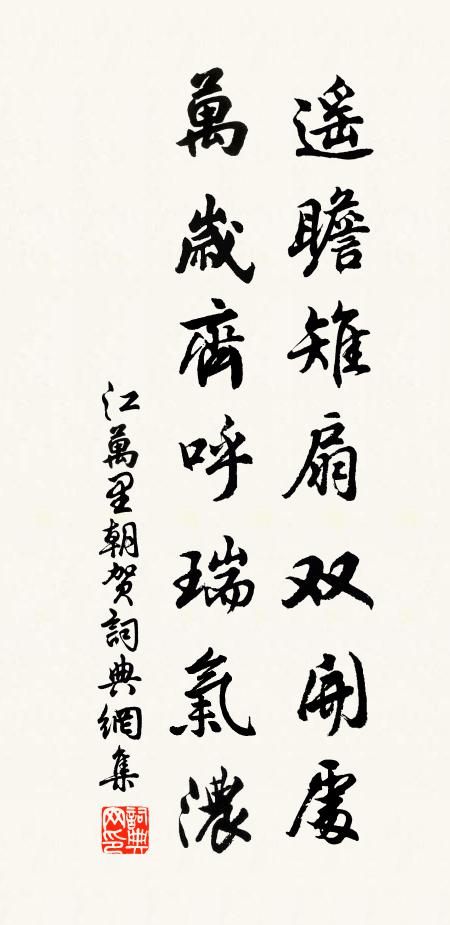 遥瞻雉扇双開處
萬歲齊呼瑞氣濃
江萬里朝贺詞典網集
詞典网印